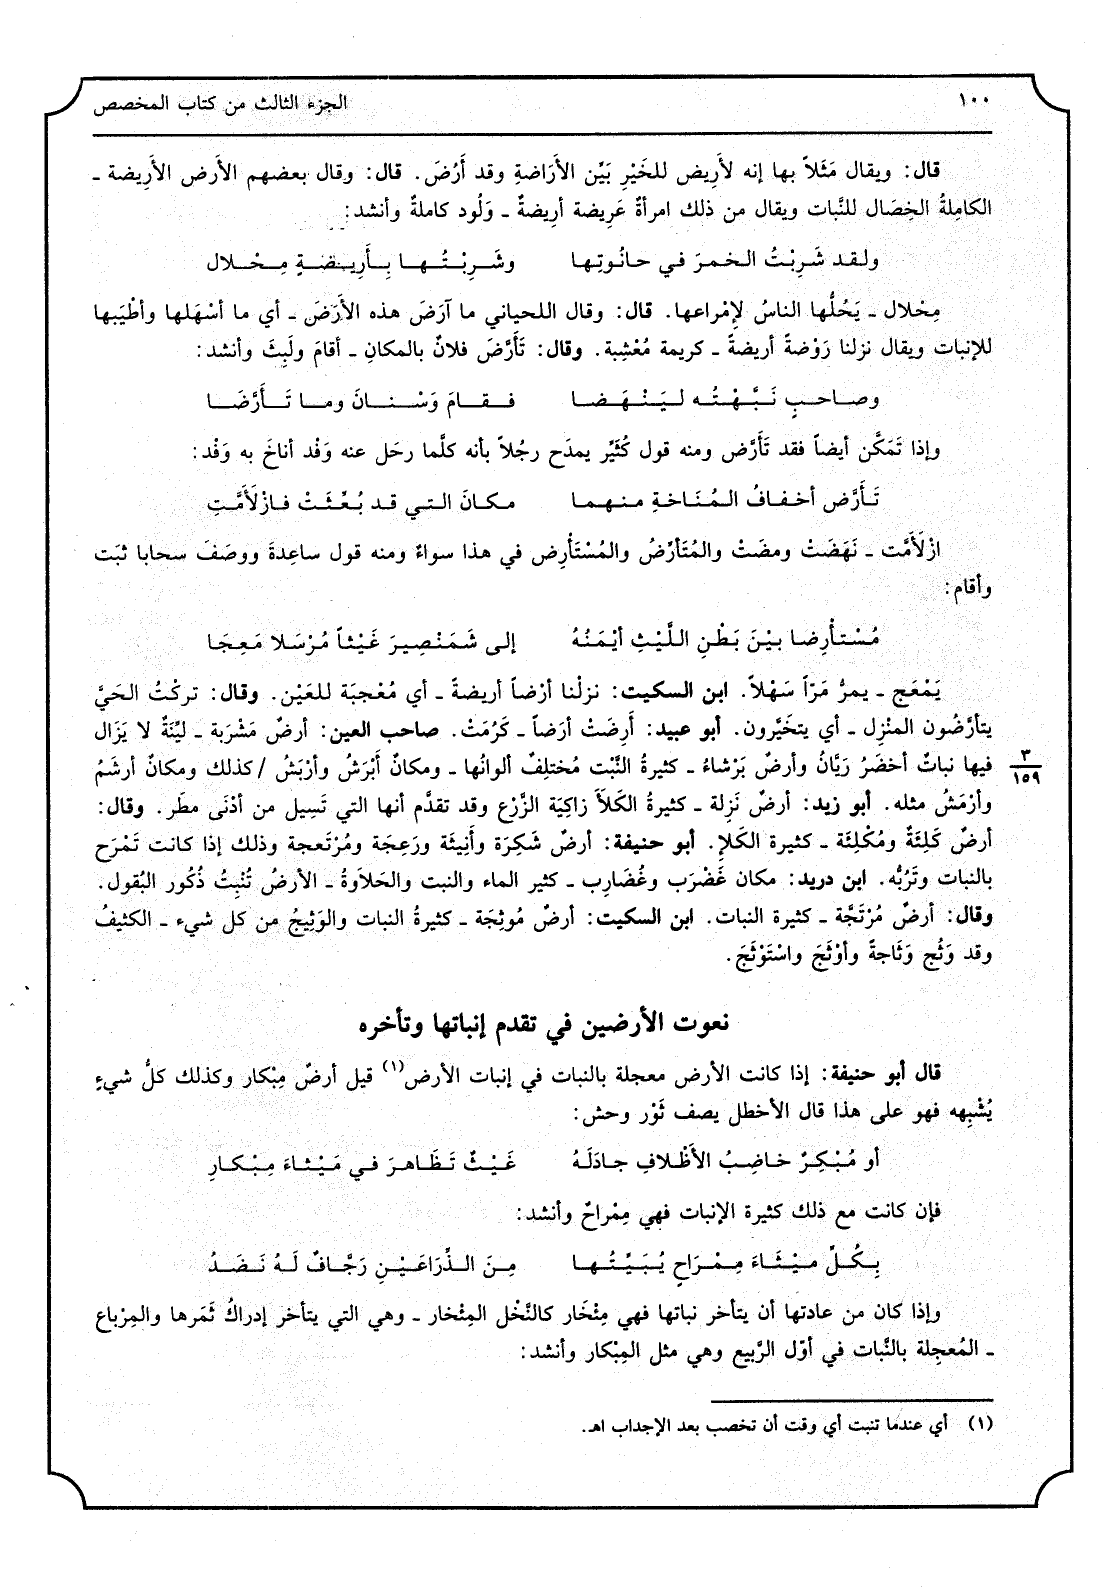 ١٠٠ الجزء الثالث من كتاب المخصص
قال: ويقال مَثَلاً بها إنه لأَرِيض للخَيْرِ بَيِّن الأَرَاضةِ وقد أَرُضَ. قال: وقال بعضهم الأَرض الأَرِيضة ـ
الكامِلةُ الخِصَال للنَّبات ويقال من ذلك امرأةٌ عَرِيضة أرِيضةٌ ـ وَلُود كاملةٌ وأنشد:
ولقد شَرِبْتُ الخمرَ في حانُوتِها وشَرِبْتُها بِأَرِيضةٍ مِحْلال
مِحْلال ـ يَحُلُّها الناسُ لإمْراعها. قال: وقال اللحياني ما آرَضَ هذه الأَرَضَ ـ أي ما أسْهَلها وأطْيَبها
للإنبات ويقال نزلنا رَوْضةً أريضةً ـ كريمة مُعْشِبة. وقال: تَأَرَّضَ فلانٌ بالمكانِ ـ أقامَ ولَبِثَ وأنشد:
وصاحبٍ نَبَّهْتُه ليَنْهَضا فقامَ وَسْنانَ وما تَأَرَّضَا
وإذا تَمَكَّن أيضاً فقد تَأَرَّض ومنه قول كُثَيِّر يمدَح رجُلاً بأنه كلَّما رحَل عنه وَفْد أناخَ به وَفْد:
تَأَرَّض أخفافُ المُنَاخةِ منهما مكانَ التي قد بُعِّثَتْ فازْلَأَمَّتِ
ازْلَأَمَّت ـ نَهَضَتْ ومضَتْ والمُتَأرِّضُ والمُسْتَأْرِض في هذا سواءٌ ومنه قول ساعِدةَ ووصَفَ سحابا ثبَت
وأقام:
مُسْتأْرِضا بيْنَ بَطْنِ اللَّيْثِ أيْمَنُهُ إلى شَمَنْصِيرَ غَيْثاً مُرْسَلا مَعِجَا
يَمْعَج ـ يمرُّ مَرّاً سَهْلاً. ابن السكيت: نزلْنا أرْضاً أريضةً ـ أي مُعْجبَة للعَيْن. وقال: تركْتُ الحَيَّ
يتأرَّضُون المنْزِل ـ أي يتخَيَّرون. أبو عبيد: أَرِضَتْ أرَضاً ـ كَرُمَتْ. صاحب العين: أرضٌ مَشْرَبة ـ ليِّنَةٌ لا يَزَال
فيها نباتٌ أخضَرُ رَيَّانُ وأرضٌ بَرْشاءُ ـ كثيرةُ النَّبْت مُختلِفٌ ألوانُها ـ ومكانٌ أبْرَشُ وأرْبَشُ / كذلك ومكانٌ أرشَمُ
٣
١٥٩
وأرْمَشُ مثله. أبو زيد: أرضٌ نَزِلة ـ كثيرةُ الكَلأَ زاكِيَة الزَّرْع وقد تقدَّم أنها التي تَسِيل من أدْنَى مطَر. وقال:
أرضٌ كَلِئَةٌ ومُكْلِئَة ـ كثيرة الكَلإِ. أبو حنيفة: أرضٌ شَكِرَة وأَنِيثَة ورَعِجَة ومُرْتَعجة وذلك إذا كانت تَمْرَح
بالنبات وتَرُبُّه. ابن دريد: مكان غَضْرَب وغُضَارِب ـ كثير الماء والنبت والحَلَاوةُ ـ الأرضُ تُنْبِتُ ذُكُور البُقول.
وقال: أرضٌ مُرْتَجَّة ـ كثيرة النبات. ابن السكيت: أرضٌ مُوثِجَة ـ كثيرةُ النبات والوَثِيجُ من كل شيء ـ الكثيفُ
وقد وَثُج وَثَاجةً وأوْثَجَ واسْتَوْثَجَ.
نعوت الأرضين في تقدم إنباتها وتأخره
قال أبو حنيفة: إذا كانت الأرض معجلة بالنبات في إنبات الأرض(١) قيل أرضٌ مِبْكار وكذلك كلُّ شيءٍ
يُشْبِهه فهو على هذا قال الأخطل يصف ثَوْر وحش:
أو مُبْكِرٌ خاضِبُ الأَظْلافِ جادَلَهُ غَيْثٌ تَظَاهرَ في مَيْثاءَ مِبْكارِ
فإن كانت مع ذلك كثيرة الإنبات فهي مِمْراحٌ وأنشد:
بِكُلِّ ميْثَاءَ مِمْرَاحٍ يُبَيِّتُها مِنَ الذِّرَاعَيْنِ رَجَّافٌ لَهُ نَضَدُ
وإذا كان من عادتها أن يتأخر نباتها فهي مِئْخَار كالنَّخْل المِئْخار ـ وهي التي يتأخر إدراكُ ثَمَرها والمِرْباع
ـ المُعجِلة بالنَّبات في أوّل الرَّبيع وهي مثل المِبْكار وأنشد:
(١) أي عندما تنبت أي وقت أن تخصب بعد الإجداب اهـ.